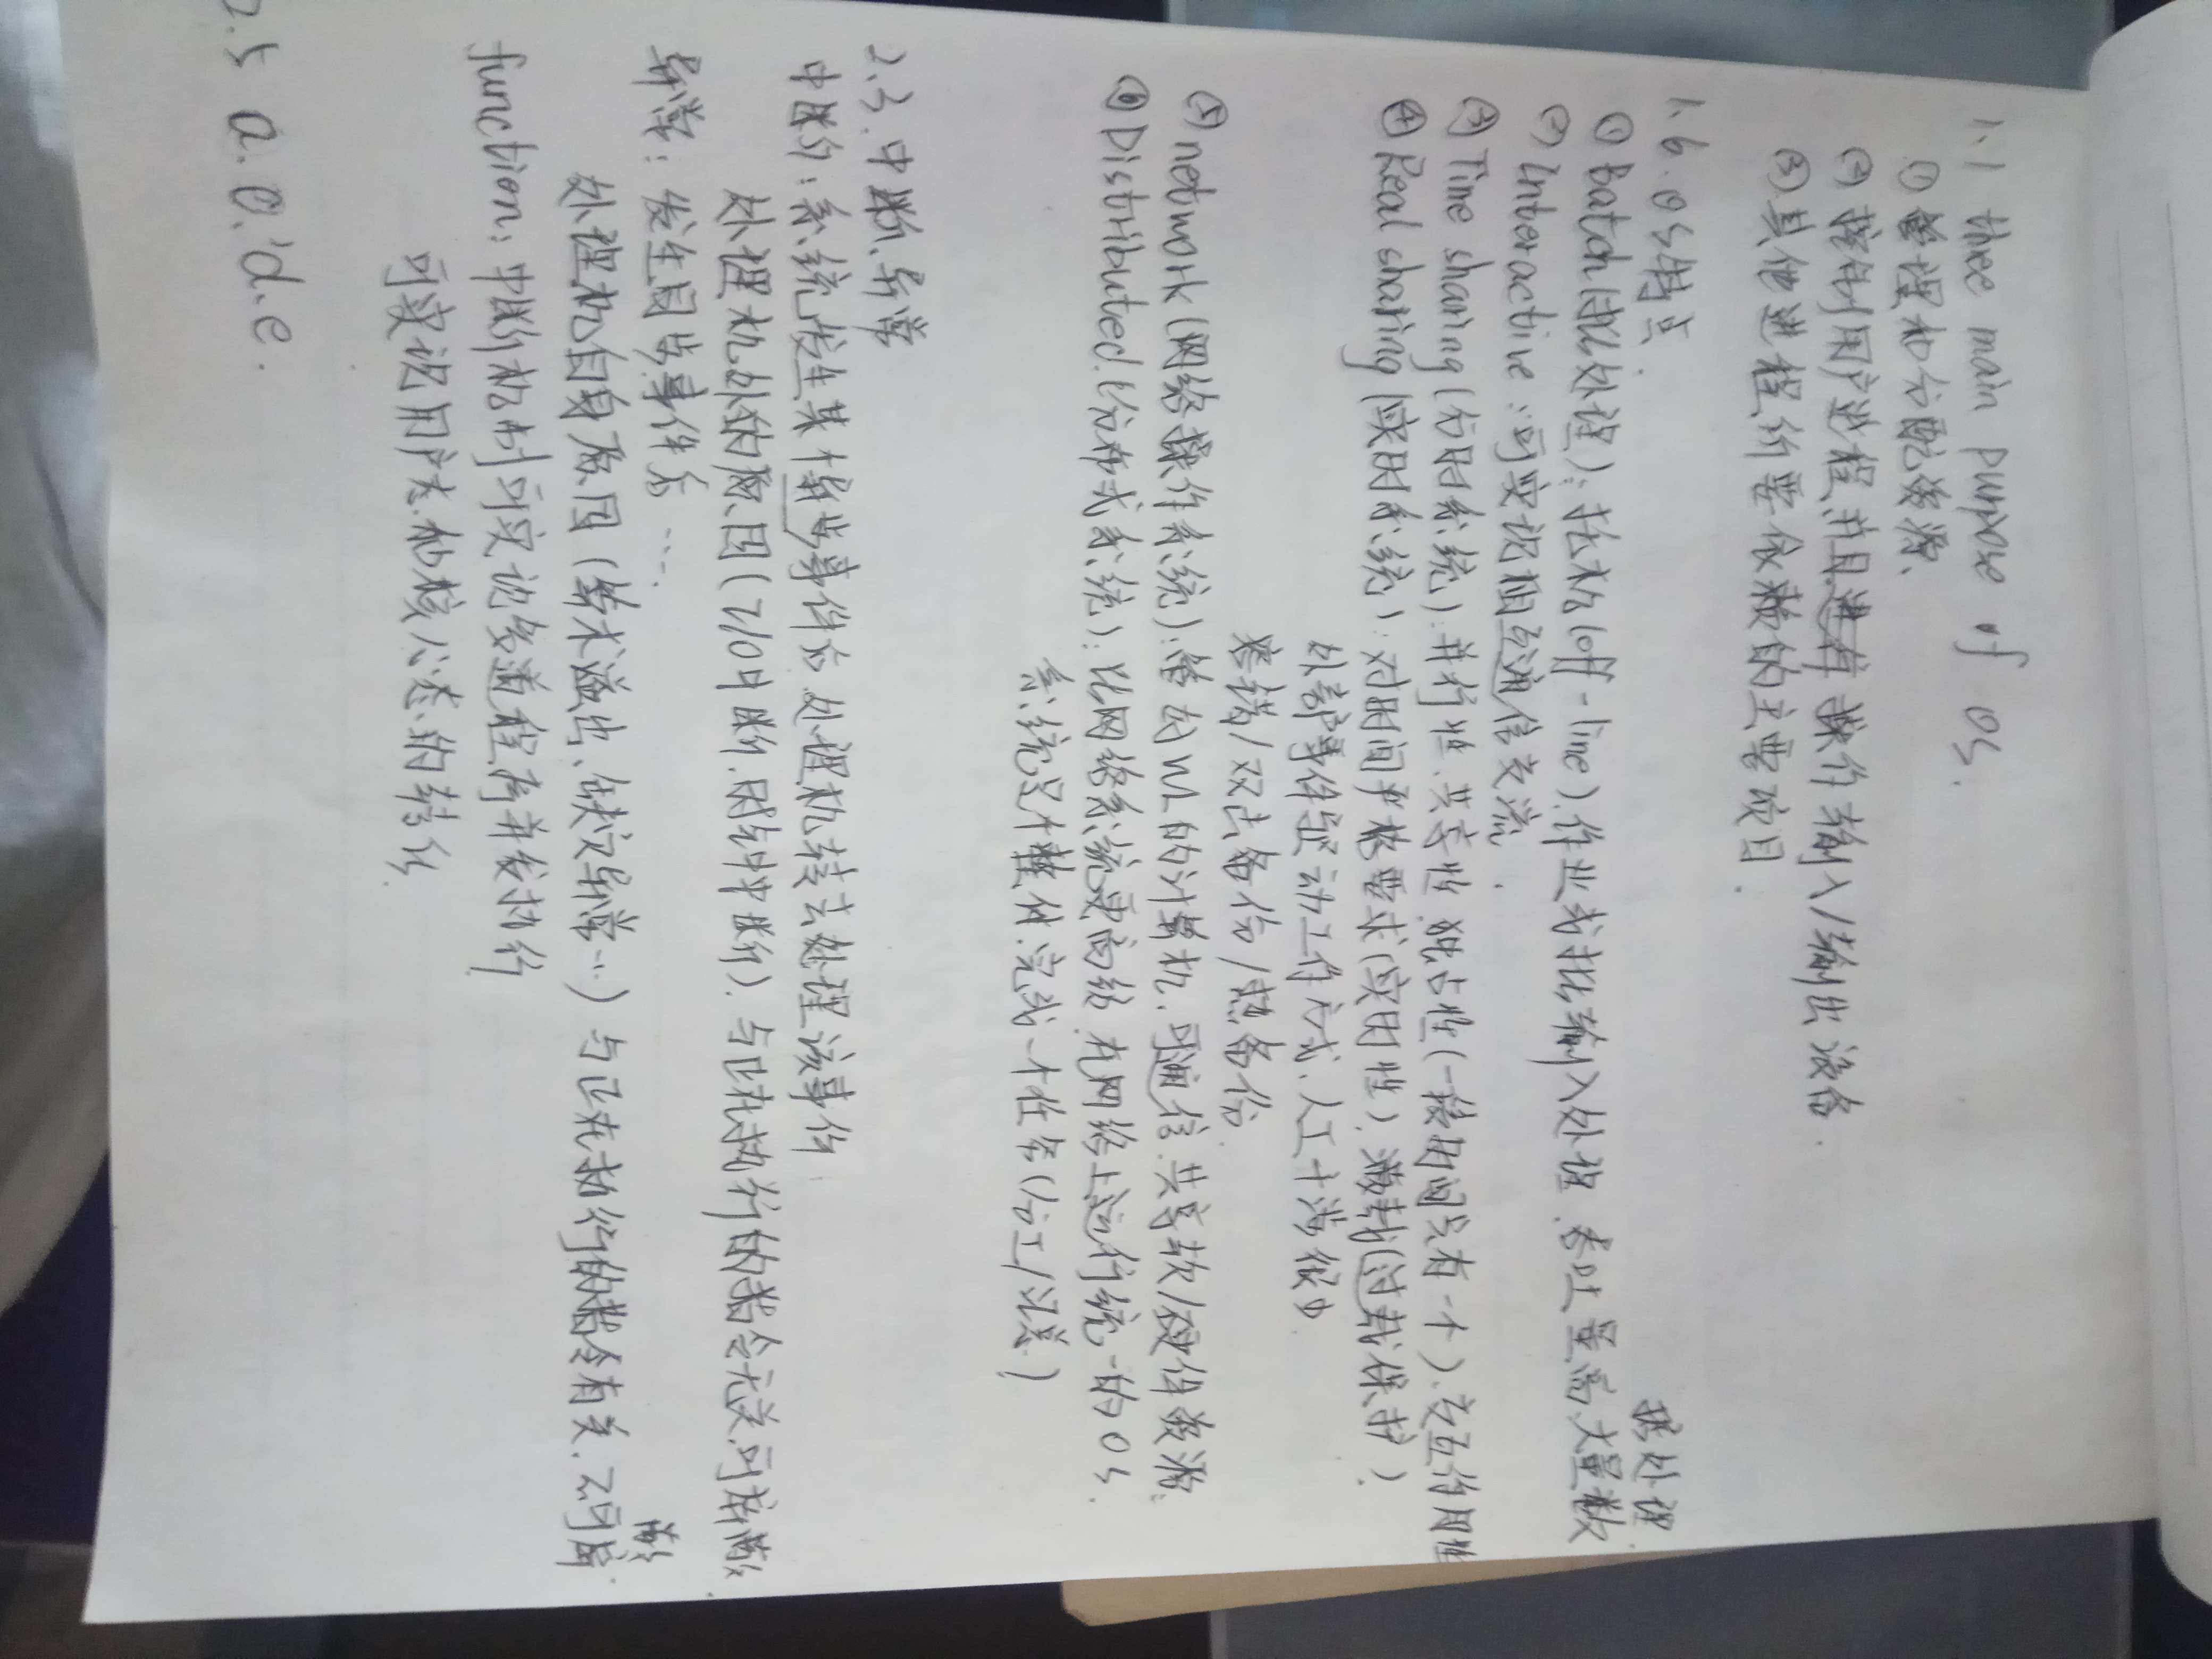 1.1 three main purpose of OS.
① 管理和分配资源、
② 控制用户进程、并且操作输入/输出设备.
③ 其他进程所要依赖的主要项目.
1.6. OS特点.
① Batch(批处理): 托机(off-line).作业或批输入处理.吞吐量高、大量数
据处理.
② Interactive: 可实现相互通信交流.
③ Time sharing(分时系统): 并行性、共享性.独占性(一段时间只有一个).交互作用性
④ Real sharing(实时系统): 对时间严格要求(实时性).满载(过载保护).
外部事件驱动工作方式、人工干涉很少
容错/双击备份/热备份.
⑤ network(网络操作系统): 管的计算机、可通信.共享软/硬件资源.
⑥ Distributed.(分布式系统): 比网络系统更高级.在网络上运行统一的OS.
系统是个整体.完成一个任务(分工/汇总)
2.3.中断、异常
中断: 系统发生某个异步事件后.处理机转去处理该事件
处理机外的原因(I/O中断.时钟中断).与正在执行的指令无关.可屏蔽.
异常: 发生同步事件后....
处理机自身原因(算术溢出、缺页异常...)与正在执行的指令有关.不可屏
蔽
function: 中断机制可实现多道程序并发执行
可实现用户态和核心态的转化.
2.5 a.c.d.e.